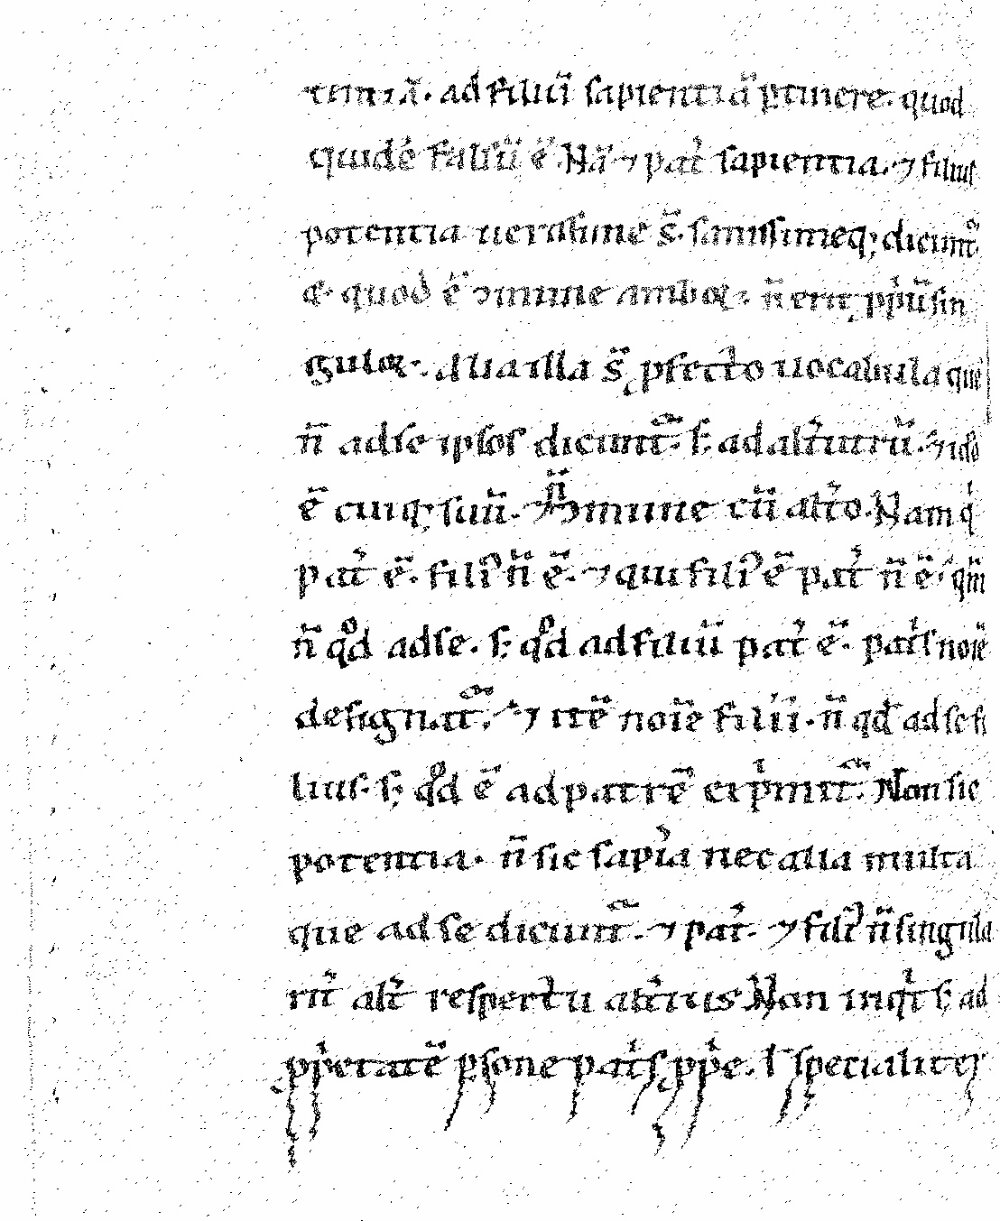 tentiā. ad filiū sapientiā ꝑtinere. quod
quidē falsū ē. Nā ⁊ pat̉ sapientia. ⁊ filius
potentia uerissime s̄. sanissimeq; dicunt᷑
⁊ quod ē ɔmune amboꝝ. n̄ erit ꝓpͥū sin
guloꝝ. Alia illa s̄ ꝓfecto uocabula que
n̄ ad se ipsos dicunt᷑. s; ad alt̉utrū. ⁊ iđo
ē cuiq; suū. n̄ ɔmune cū alt̉o. Nam qͥ
pat̉ ē. filiꝰ n̄ ē. ⁊ qui filiꝰ ē pat̉ n̄ ē. qm̄
n̄ qͦd ad se. s; qͦd ad filiū pat̉ ē. patͥs noīe
designat᷑. ⁊ itē noīe filii. n̄ qͦd ad se fi
lius. s; qͦd ē ad patrē exp̉mit᷑. Non sic
potentia. n̄ sic sapīa nec alia multa
que ad se dicunt᷑. ⁊ pat̉. ⁊ filiꝰ n̄ singula
rit̉ alt̉ respectu alt̉ius. Non inqͥt s; ad
ꝓpͥetatē ꝑsone patͥs ꝓpͥe. ł specialiter